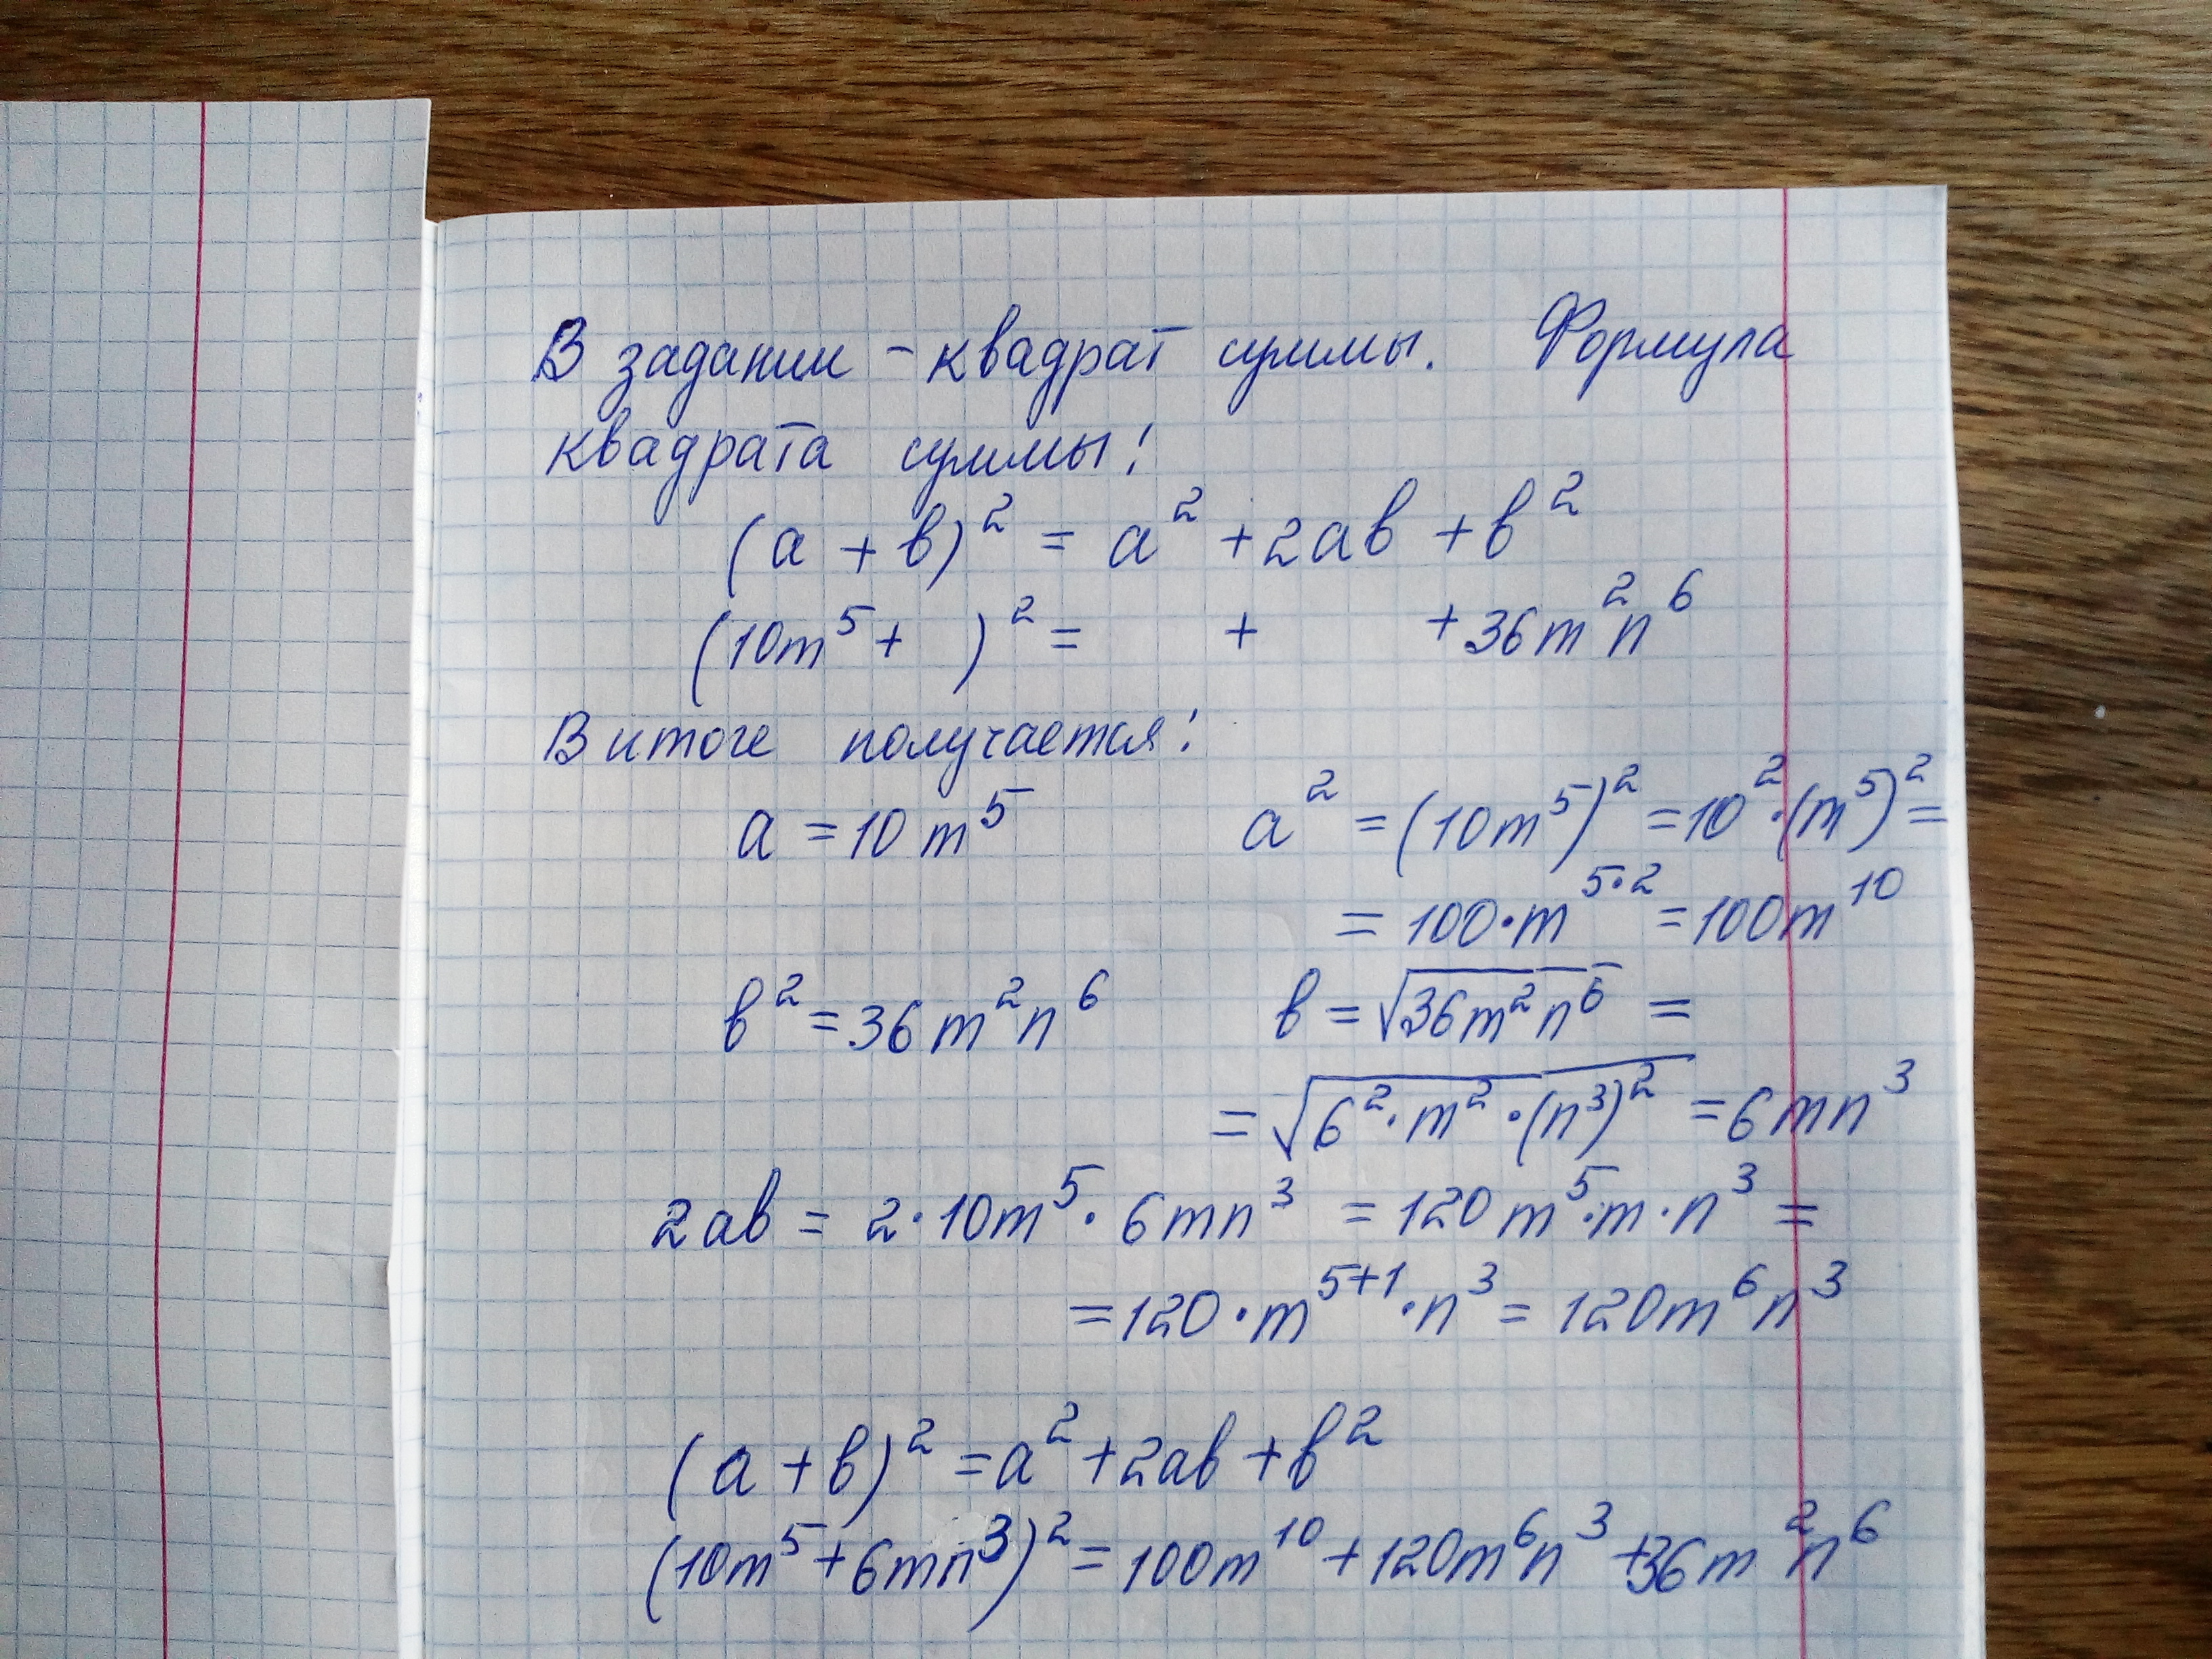 В задании - квадрат суммы. Формула
квадрата суммы:
(a + b)² = a² + 2ab + b²
(10m⁵ + )² = + + 36m²n⁶
В итоге получается:
a = 10m⁵ a² = (10m⁵)² = 10² · (m⁵)² =
= 100 · m⁵·² = 100m¹⁰
b² = 36m²n⁶ b = √36m²n⁶ =
= √6² · m² · (n³)² = 6mn³
2ab = 2 · 10m⁵ · 6mn³ = 120m⁵ · m · n³ =
= 120 · m⁵⁺¹ · n³ = 120m⁶n³
(a + b)² = a² + 2ab + b²
(10m⁵ + 6mn³)² = 100m¹⁰ + 120m⁶n³ + 36m²n⁶